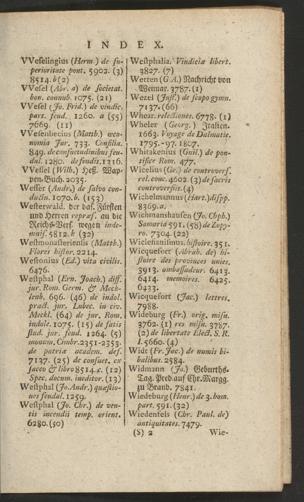 INDEX.
VVeselingius (Herm.) de su-
perioritate pont. 5902. (3)
8514. b (2)
VVesel (Abr. a) de societat.
bon. connub. 1075. (21)
VVesel (Jo. Frid.) de vindic.
part. feud. 1260. a (55)
7669. (11)
VVesenbecius (Matth.) œco-
nomia Jur. 733. Consilia.
849. de consuetudinibus feu-
dal. 1280. defensis. 1216.
VVessel (Wilh.) Heß. Wap-
pen-Buch. 2035.
Wesser (Andr.) de salvo con-
ductu. 1070. b. (153)
Westerwald. der das. Fürsten
und Herren repræs. an die
Reichs-Vers. wegen inde-
mnis. 5812. b (32)
Westmonasteriensis (Matth.)
Flores histor. 2214.
Westonius (Ed.) vita civilis.
6476.
Westphal (Ern. Joach.) diss.
jur. Rom. Germ. & Meck-
lenb. 696. (46) de indol.
pract. jur. Lubec. in civ.
Meckl. (64) de jur. Rom.
indole. 1075. (15) de satis
stud. jur. feud. 1264. (5)
monum. Cimbr. 2351-2353.
de patria academ. des.
7137. (25) de consuet. ex
sacco & libro 8514. c. (12)
Spec. docum. ineditor. (13)
Westphal (Jo. Andr.) quæstio-
nes feudal. 1259.
Westphal (Jo. Chr.) de ven-
tis incendii temp. orient.
6280. (50)
Westphalia. Vindiciæ libert.
3827. (7)
Wetten (G. A.) Nachricht von
Weimar. 3787. (1)
Wetzel (Just.) de scapo gymn.
7137. (66)
Whear. relectiones. 6778. (1)
Wheler (Georg.) Italien.
1663. Voyage de Dalmatie.
1795.-97. 1807.
Whitakenius (Guil.) de pon-
tifice Rom. 477.
Wicelius (Ge.) de controvers.
rel. conc. 4602. (3) de sacris
controversiis. (4)
Wichelmannus (Hart.) dispp.
8369. a.
Wichmanshausen (Jo. Chph.)
Samaria 591. (58) de Zopy-
ro. 7304 (22)
Wicleffianismus. histoire. 351.
Wicquefort (Abrah. de) hi-
stoire des provinces unies.
3913. ambassadeur. 6413.
6414. memoires. 6425.
6433.
Wicquefort (Jac.) lettres.
7988.
Wideburg (Fr.) orig. misn.
3760. (1) res misn. 3787.
(2) de libertate Elect. S. R.
I. 5660. (4)
Widt (Fr. Jac.) de numis bi-
balibus. 2584.
Widmann (Ja.) Geburths-
Tag. Pred. auf Chr. Margg.
zu Brand. 7841.
Wiedeburg (Henr.) de 3. hom.
part. 591. (32)
Wiedenfels (Chr. Paul. de)
antiquitates. 7479.
(S) 2
Wie-